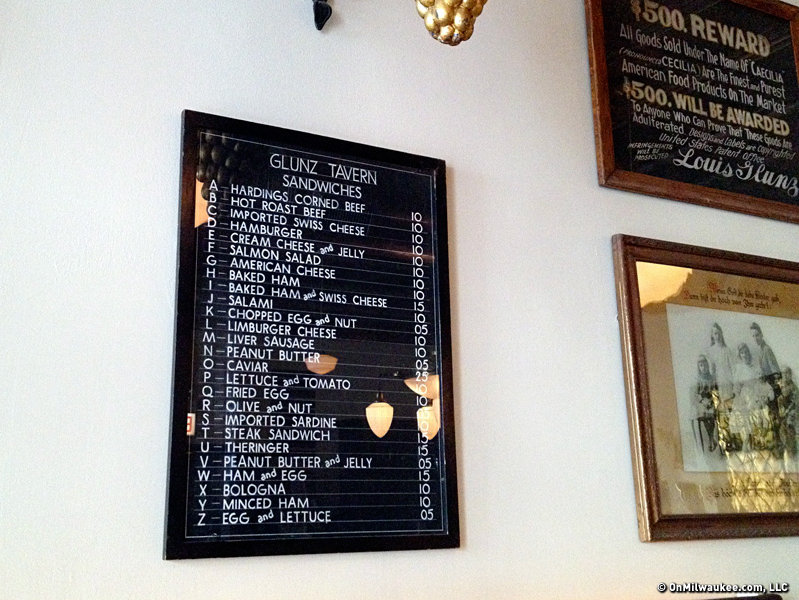 GLUNZ TAVERN
SANDWICHES
A – HARDINGS CORNED BEEF 10
B – HOT ROAST BEEF 10
C – IMPORTED SWISS CHEESE 10
D – HAMBURGER 10
E – CREAM CHEESE and JELLY 10
F – SALMON SALAD 10
G – AMERICAN CHEESE 10
H – BAKED HAM 10
I – BAKED HAM and SWISS CHEESE 15
J – SALAMI 10
K – CHOPPED EGG and NUT 05
L – LIMBURGER CHEESE 10
M – LIVER SAUSAGE 10
N – PEANUT BUTTER 05
O – CAVIAR 25
P – LETTUCE and TOMATO 10
Q – FRIED EGG 10
R – OLIVE and NUT
S – IMPORTED SARDINE
T – STEAK SANDWICH 15
U – THERINGER 15
V – PEANUT BUTTER and JELLY 05
W – HAM and EGG 15
X – BOLOGNA 10
Y – MINCED HAM 10
Z – EGG and LETTUCE 05
$500. REWARD
All Goods Sold Under The Name Of "CAECILIA"
(PRONOUNCED CECILIA) Are The Finest and Purest
American Food Products On The Market
$500. WILL BE AWARDED
To Anyone Who Can Prove That These Goods Are
Adulterated. Designs and Labels are Copyrighted
United States Patent Office
INFRINGEMENTS WILL BE PROSECUTED
Louis Glunz
© OnMilwaukee.com, LLC